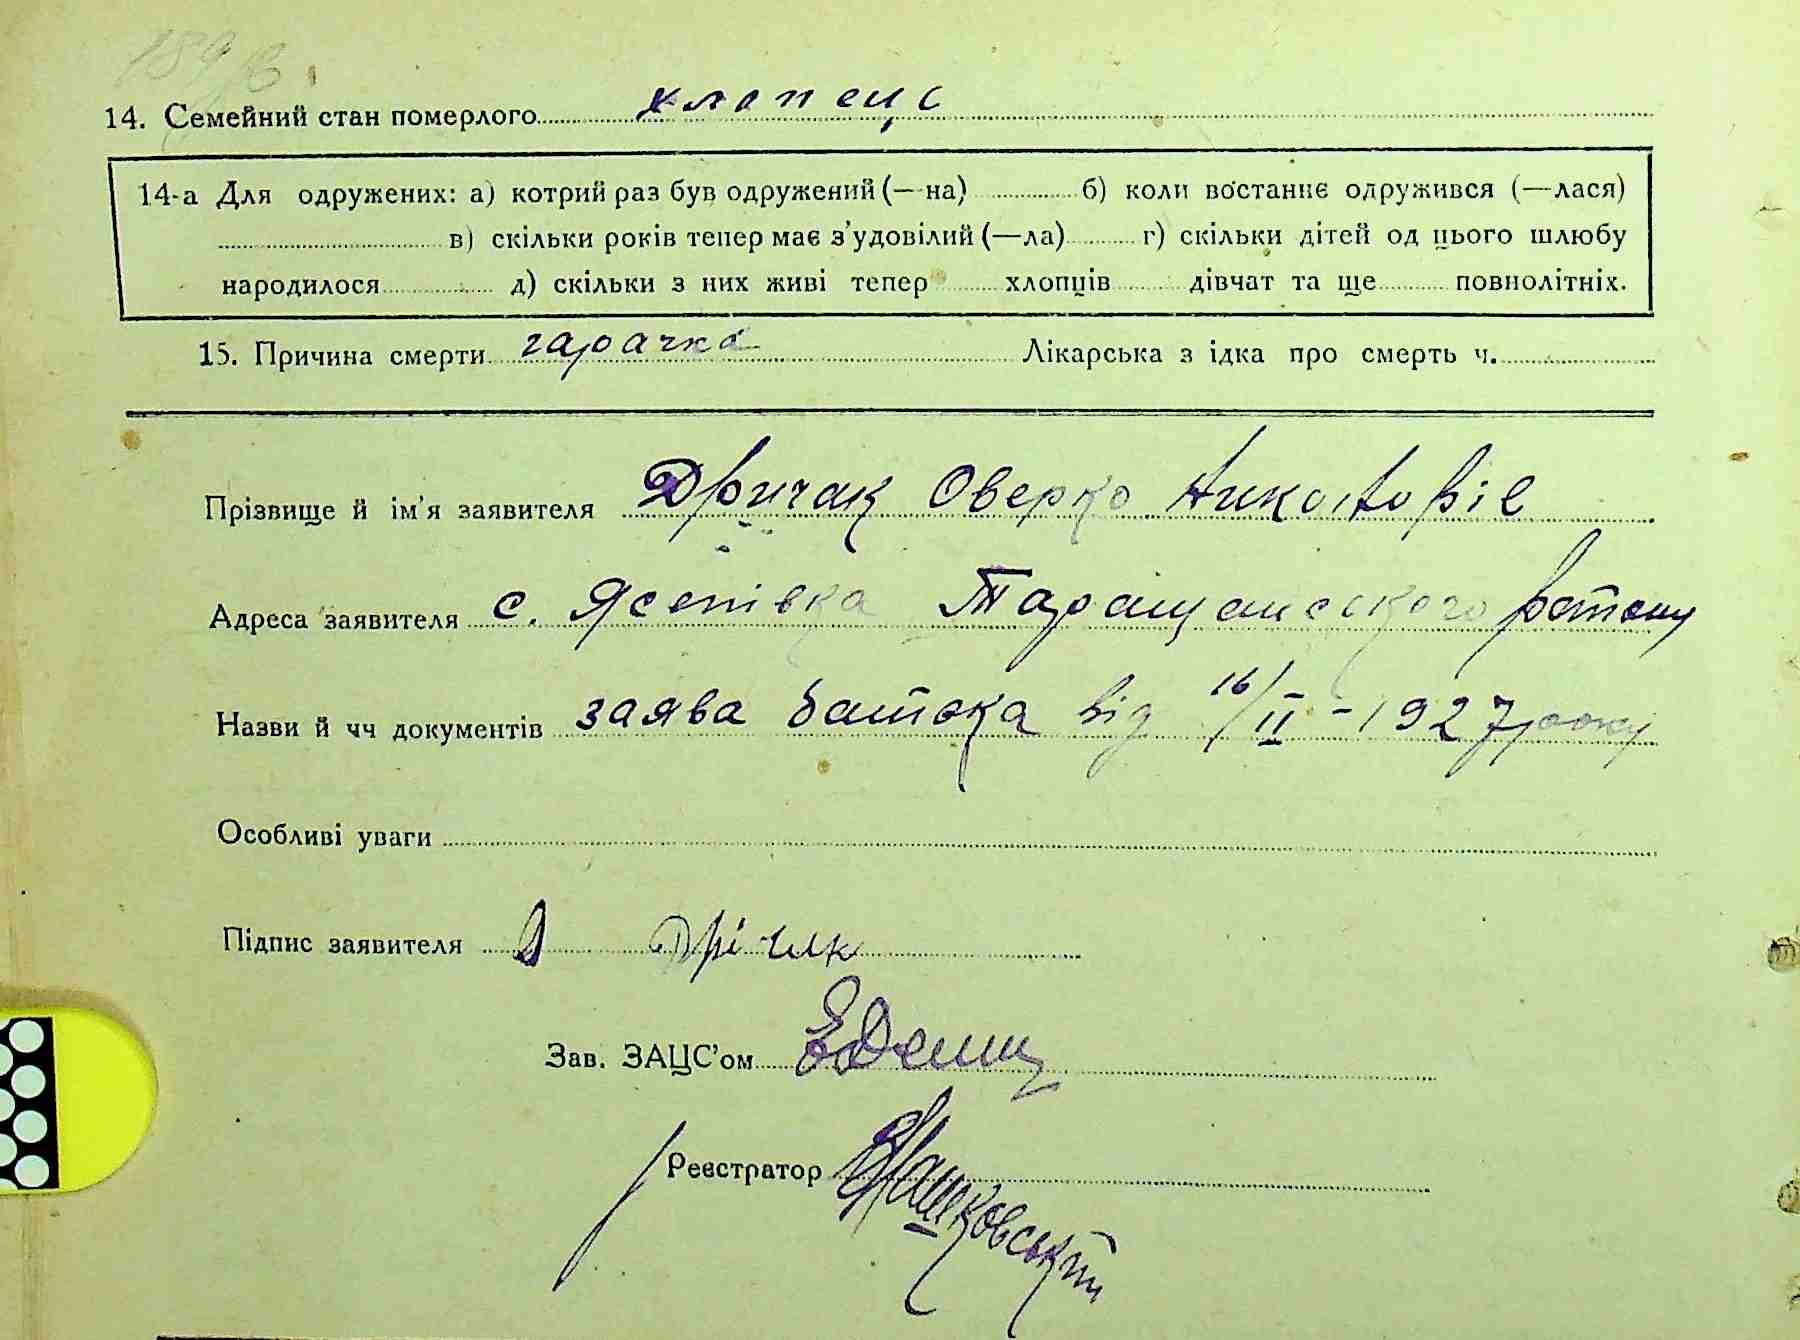 189/в.
14. Семейний стан померлого хлопець
14-а Для одружених: а) котрий раз був одружений (—на) б) коли востаннє одружився (—лася)
в) скільки років тепер має з'удовілий (—ла) г) скільки дітей од цього шлюбу
народилося д) скільки з них живі тепер хлопців дівчат та ще повнолітніх.
15. Причина смерти гарачка Лікарська з ідка про смерть ч.
Прізвище й ім'я заявителя Дричак Оверко
Адреса заявителя с. Ясенівка Таращанського району
Назви й чч документів заява батька від 16/II-1927 року
Особливі уваги
Підпис заявителя Дрічак
Зав. ЗАЦС'ом
Реєстратор